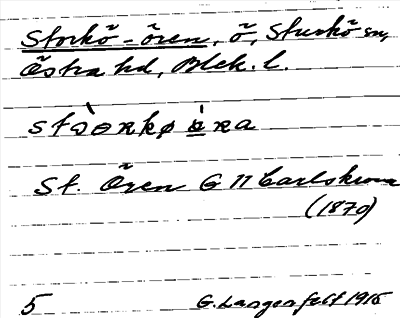 Storkö-ören, ö, Sturkö sn,
Östra hd, Blek. l.
St. Ören G 11 Carlskrona
(1870)
5 G. Langenfelt 1916